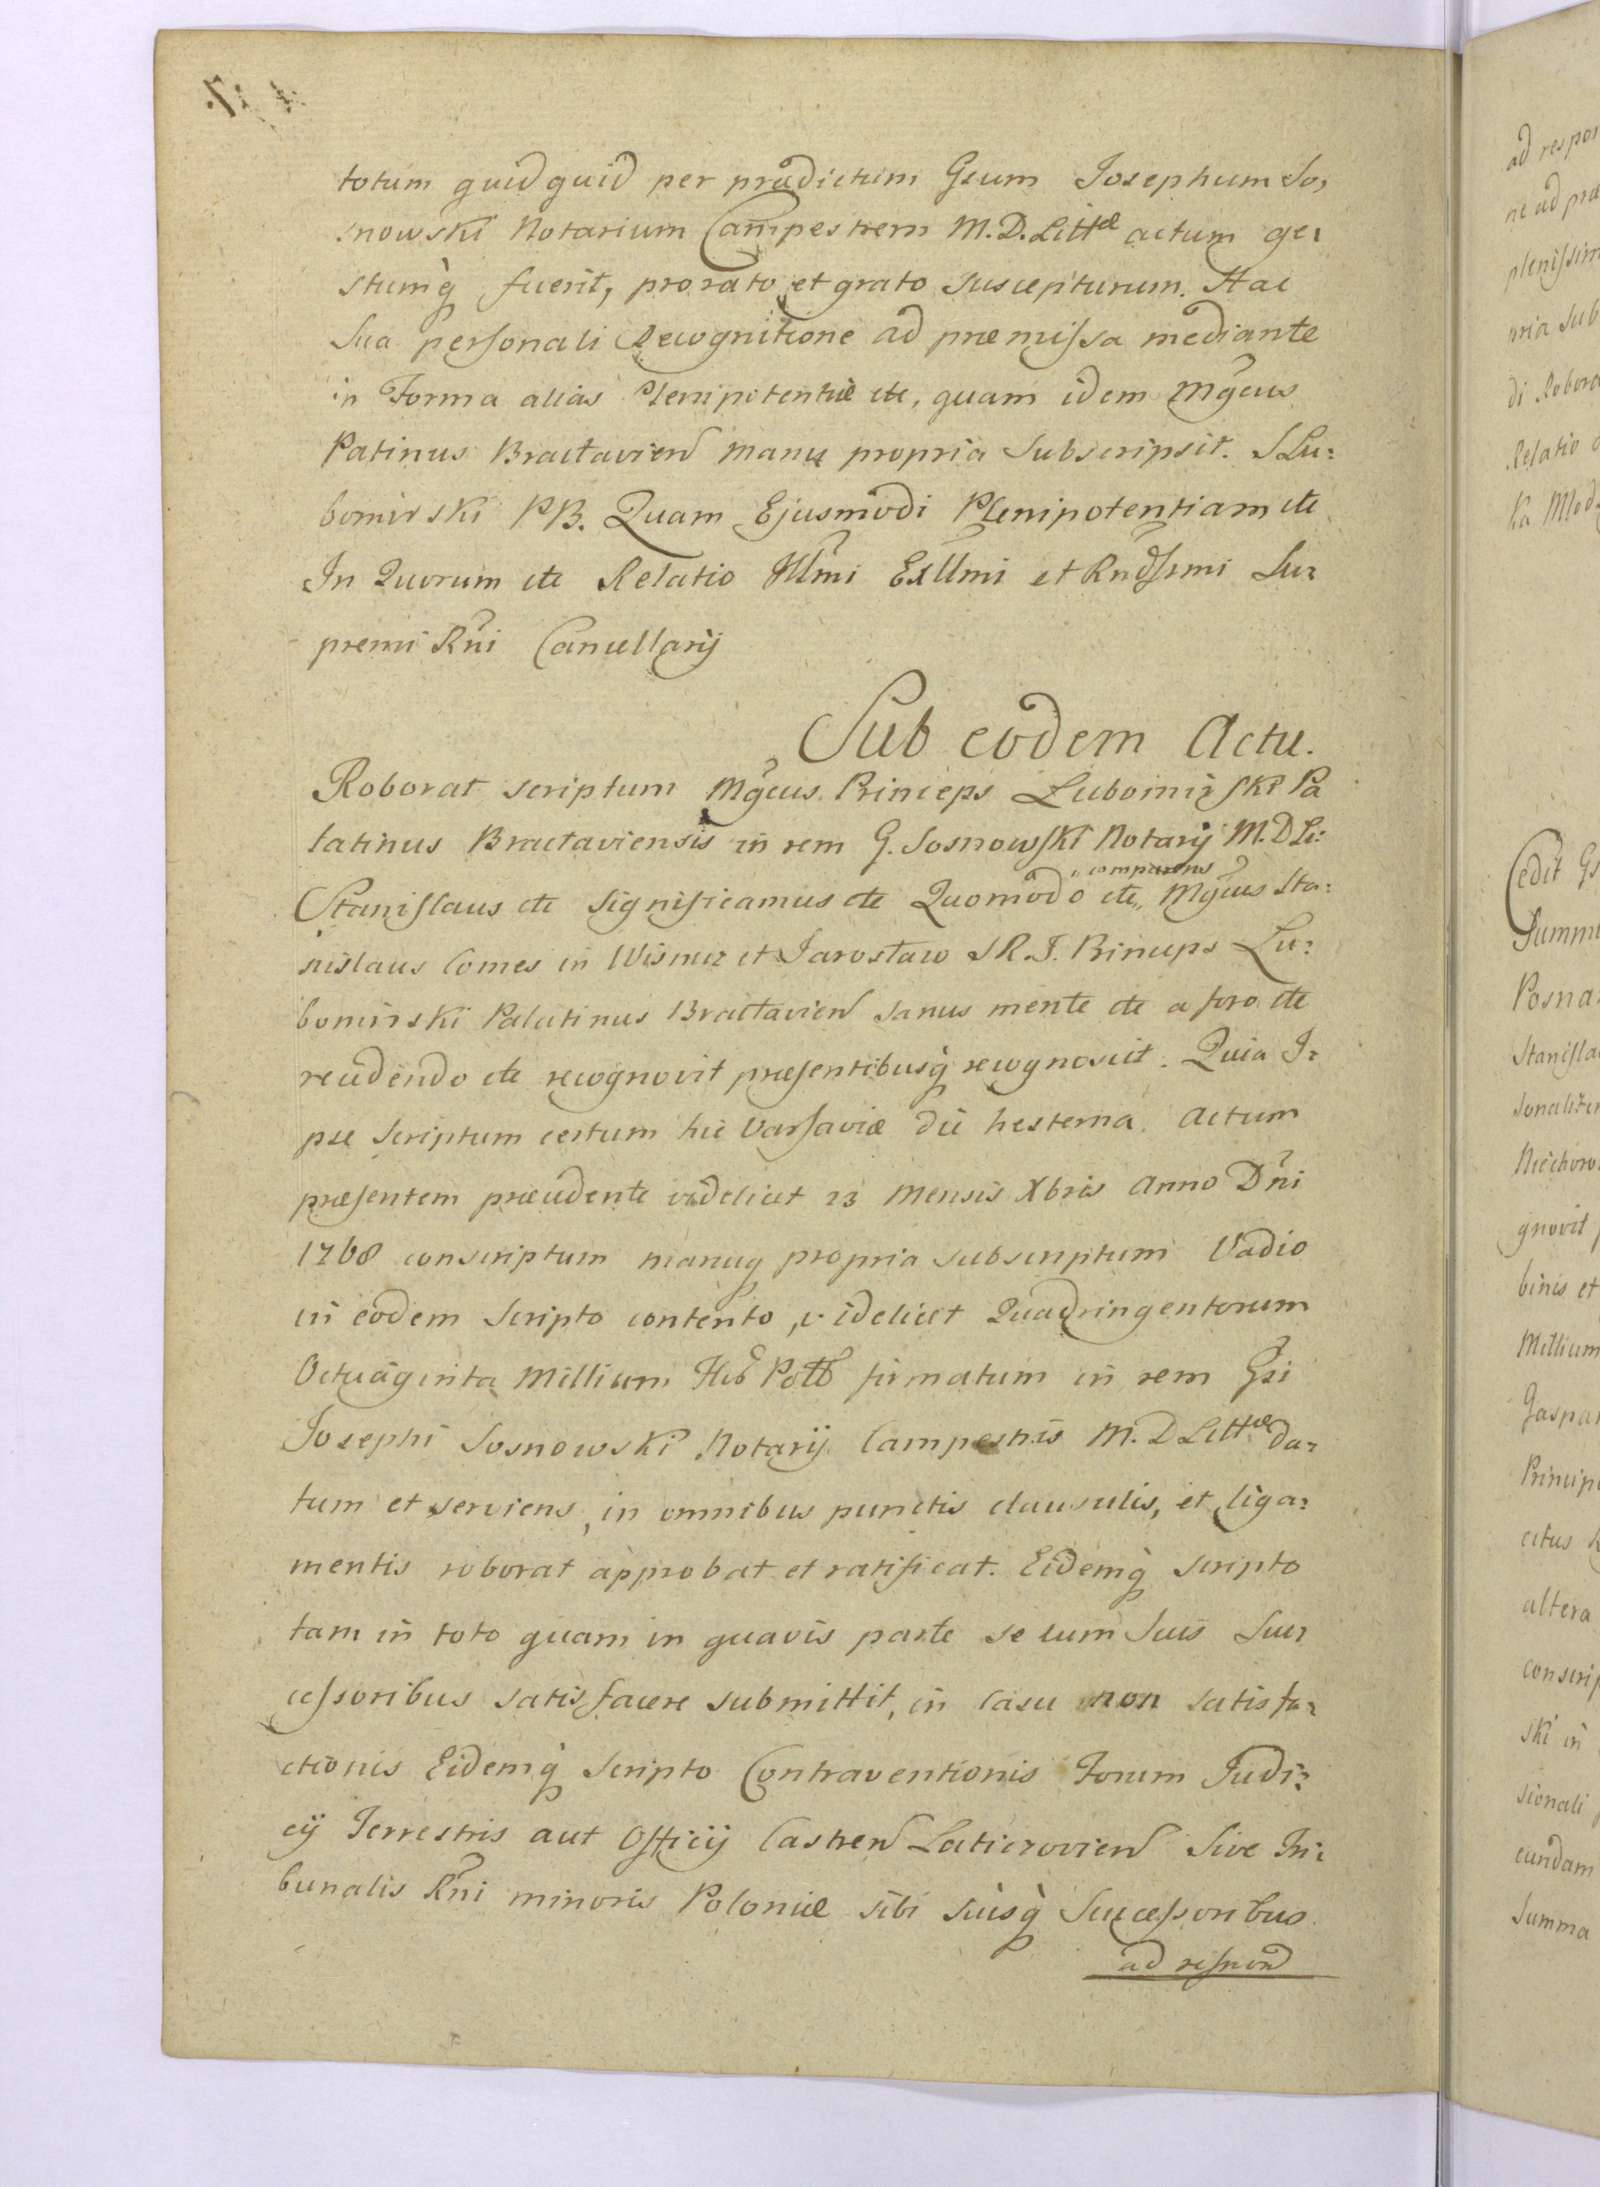 totum quidquid per prædictum Gsum Josephum So,
snowski Notarium Campestrem M.D.Littæ actum ge,
stumq̀ fuerit, pro rato, et grato suscepturum. Hac
Sua personali Recognitione ad præmissa mediante
in Forma alias Plenipotentiæ etc, quam idem Mgcus
Patinus Bractavien manu propria subscripsit. SLu:
bomirski PB. Quam Ejusmodi Plenipotentiam etc
In Quorum etc Relatio Illmi Exllmi et Rndssmi Su,
premi Rni Cancellarij
Sub eodem Actu.
Roborat scriptum Mgcus Princeps Lubomirski Pa
latinus Bractaviensis in rem G. Sosnowski Notarij M.D Li:
comparens
Stanislaus etc Significamus etc Quomodo etc, Mgcus Sta:
nislaus Comes in Wisnicz et Jarosław S.R.I. Princeps Lu:
bomirski Palatinus Bractavien sanus mente etc a foro etc
recedendo etc recognovit præsentibusq̀ recognoscit. Quia I,
pse scriptum certum hic Varsaviæ die hesterna Actum
præsentem præcedente videlicet 23 Mensis Xbris Anno Dni
1768 conscriptum manuq propria subscriptum Vadio
in eodem Scripto contento, videlicet Quadringentorum
Octuaginta Millium Flnô Pollô firmatum in rem Gsi
Josephi Sosnowski Notarij Campestris M. D Littæ da,
tum et serviens, in omnibus punctis clausulis, et liga,
mentis roborat approbat et ratificat. Eidemq̀ Scripto
tam in toto quam in quavis parte se cum Suis Suc,
cessoribus satisfacere submittit, in Casu non satisfa,
ctionis Eidemq̀ Scripto Contraventionis Forum Judi,
cij Terrestris aut Officij Castren Laticzovien Sive Tri,
bunalis Rni minoris Poloniæ sibi suisq̀ Successoribus
ad respond